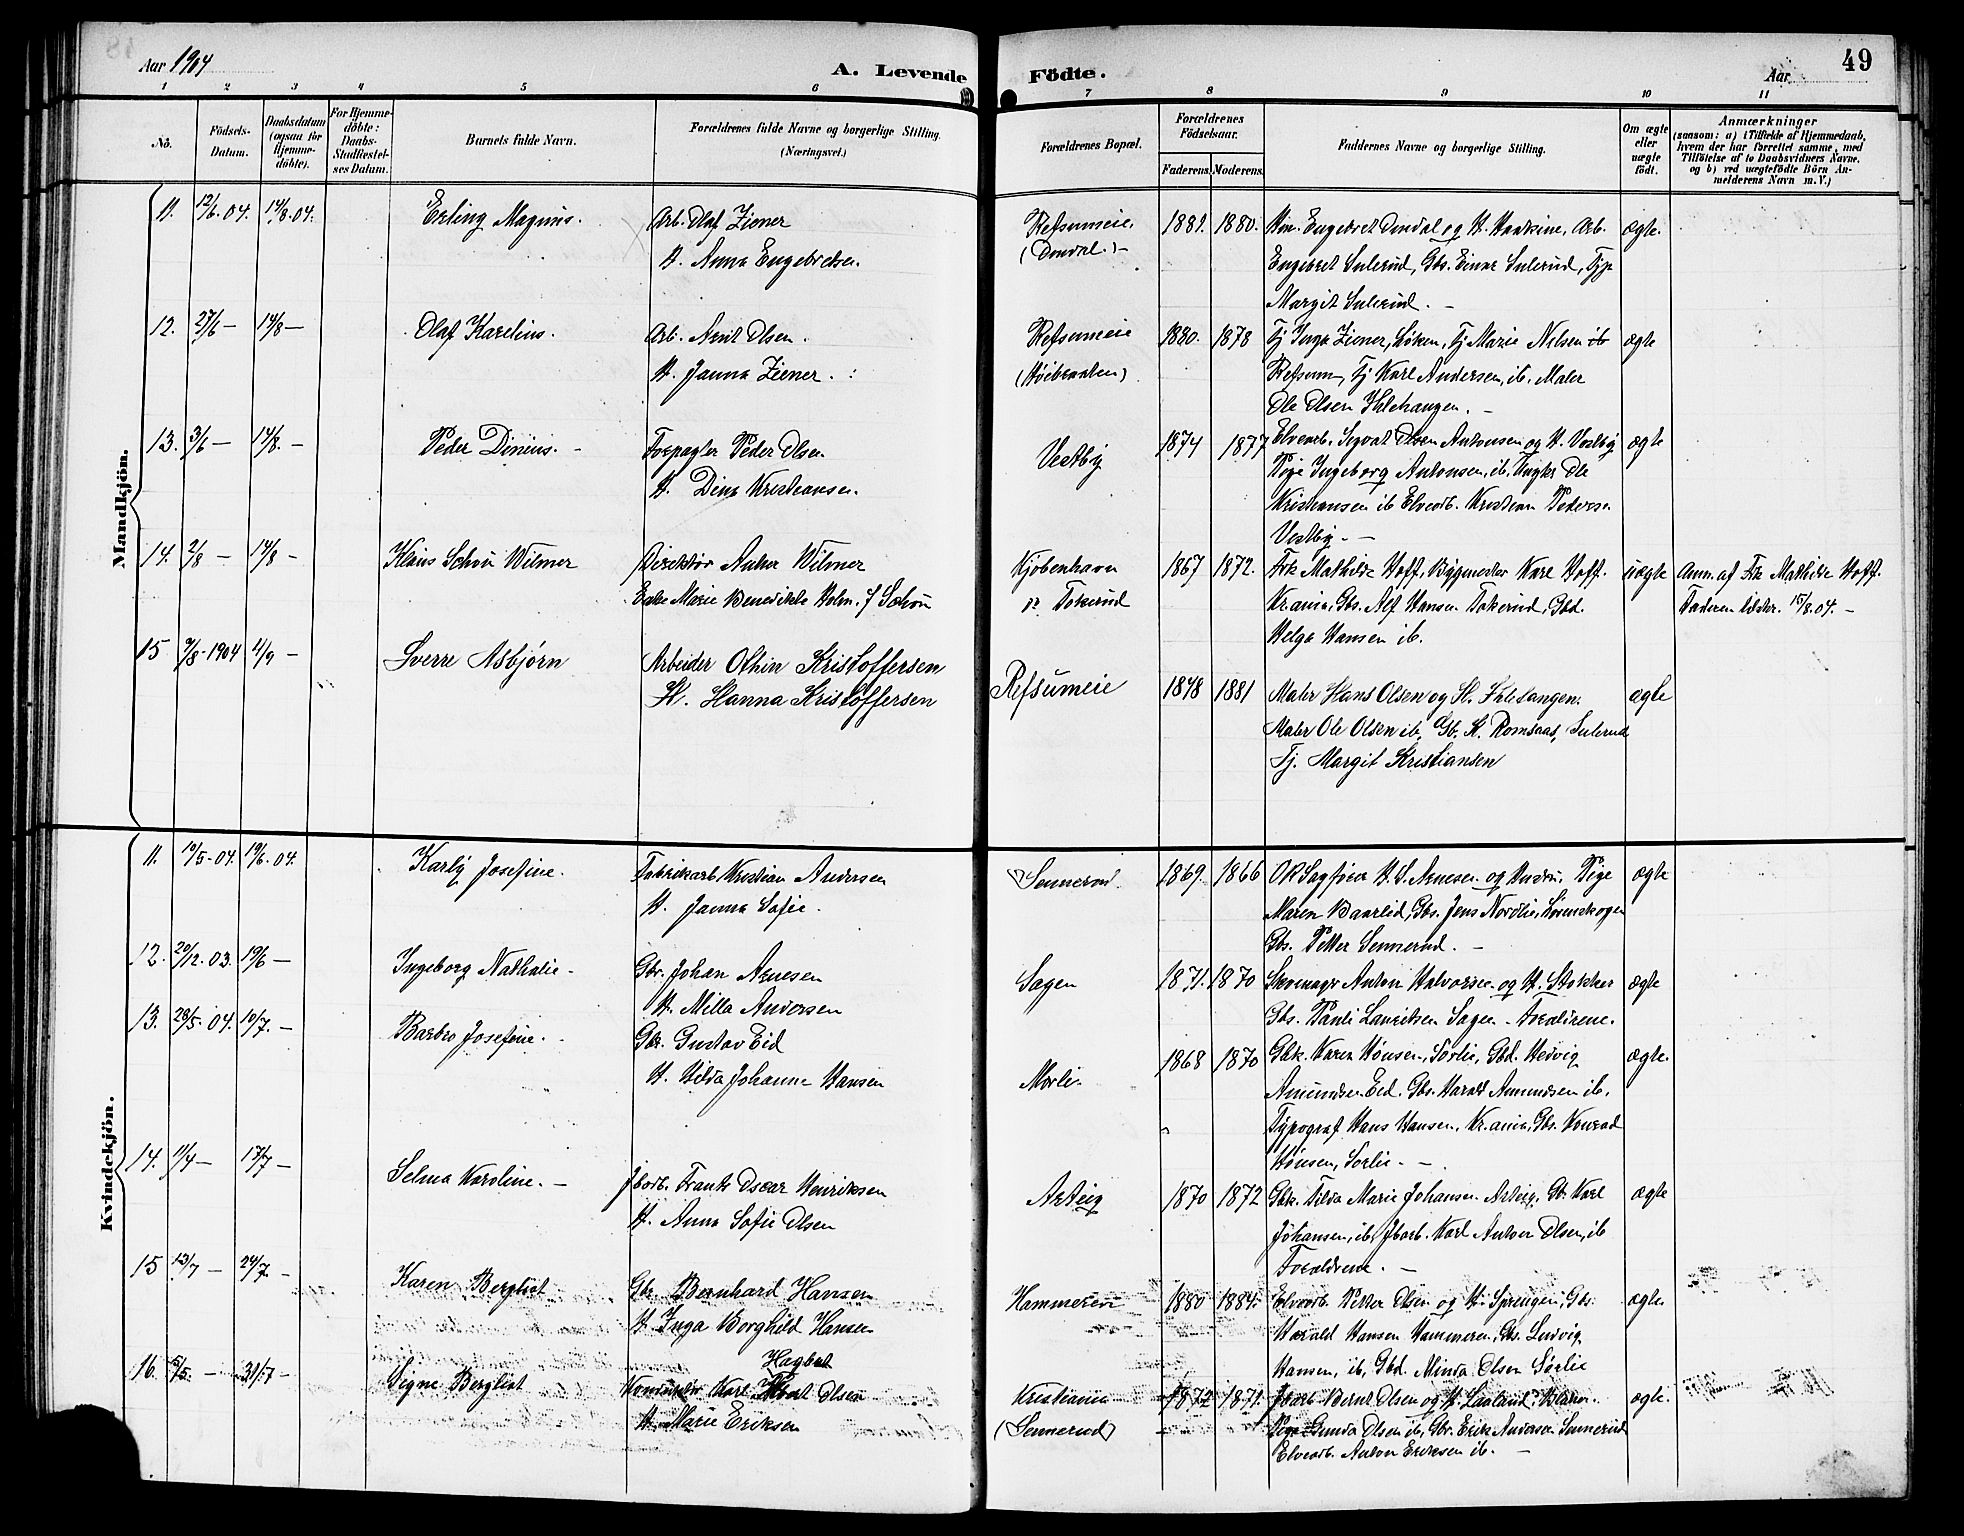 Aar 1904
A. Levende
Födte.
Aar
49
1 2 3 4 5 6 7 8 9 10 11
No.
Födsels-
Datum.
Daabsdatum
(ogsaa for
Hjemme-
döbte).
For Hjemme-
döbte:
Daabs-
Stadfæstel-
ses Datum.
Barnets fulde Navn.
Forældrenes fulde Navne og borgerlige Stilling.
(Næringsvei.)
Forældrenes Bopæl.
Forældrenes
Födselsaar.
Faderens. Moderens.
Faddernes Navne og borgerlige Stilling.
Om ægte
eller
uægte
födt.
Anmærkninger
(saasom: a) i Tilfælde af Hjemmedaab,
hvem der har forrettet samme, med
Tilföielse af to Daabsvidners Navne,
og b) ved uægtefödte Börn An-
melderens Navn m. V.)
Mandkjön.
11. 12/6.04. 14/8.04. Erling Magnus. Arb. Olaf Ziener Refsumeie. 1881. 1880. Engebret Dondal og H. Arb. ægte.
H. Anna Engebretsen. (Dondal.)
Engebret Sulerud, Gbs. Einar Sulerud,
Margit Sulerud. —
12. 27/6 — 14/8 — Olaf Karelius. Arb. Arnt Olsen. Refsumeie 1880. 1878 Tj Inga Ziener, Løken, Tj Marie Nilsen ægte
H. Janna Ziener. (Høibraaten) Refsum, Tj Karl Andersen, ib. Maler
Ole Olsen
13. 3/6 — 14/8. — Peder Dinius. — Forpagter Peder Olsen Vestby 1874 1877 Elvearb. Sigvat Olsen Antonsen og H. Vestby ægte
H. Dina Kristiansen. Pige Ingeborg Antonsen, ib. Ungkr Ole
Kristiansen ib Elvearb. Kristian Pedersen
Vestby. —
14. 2/8 — 14/8 — Klaus Schou Wilmer Direktör Anker Wilmer Kjøbenhavn 1867 1872. Frk Mathilde Hoff, Bygmester Karl Hoff. uægte Anm. af Frk Mathilde Hoff.
Enke Marie Benedikte Holm, f Schou Tokerud Kr.ania, Gbs. Alf Hansen Tokerud, Gbd. Faderen 15/8.04. —
Helga Hansen ib.
15 9/8-1904 4/9 — Sverre Asbjørn Arbeider Othin Kristoffersen Refsumeie 1878 1881 Maler Hans Olsen og H. ægte
H. Hanna Kristoffersen Maler Ole Olsen ib, Gb. K. Romsaas, Sulerud
Tj. Margit Kristiansen
Kvindekjön.
11. 19/5-04. 19/6.04 Karly Josefine. Fabrikarb. Kristian Andersen Sennerud. 1869. 1866 OR Sagfører H. S. Arnesen og Hustru, Pige ægte
H. Janna Sofie. Maren Baarlid, Gbs. Jens Nordlie, Lørenskogen
Gbs. Petter Sennerud. —
12. 20/12.03. 19/6 — Ingeborg Nathalie — Gbr. Johan Arnesen Sagen 1871. 1870 Skomager Anton Halvorsen og H. Stokker ægte
H. Milla Andersen Gbs. Pauli Lauritsen Sagen — Forældrene.
13. 28/5.04. 10/7. — Barbro Josefine. Gbr. Gustav Eid Morli. 1868 1870 Gbk. Karen Hønsen, Sørlie, Gbd. Hedvig ægte.
H. Hilda Johanne Hansen Amundsen Eid. Gbs. Harald Amundsen ib.
Typograf Hans Hansen, Kr.ania, Gbs. Konrad
Hønsen, Sørlie. —
14. 11/4 — 17/7 — Selma Karoline. — Jbarb. Frants Oscar Henriksen Arteig 1870 1872 Gbk. Tilda Marie Johansen Arteig, Gb. Karl ægte
H. Anna Sofie Olsen Johansen, ib, Jbarb. Karl Anton Olsen, ib
Forældrene. —
15 13/7 — 24/7 — Karen Bergliot Gbr. Bernhard Hansen Hammeren 1880 1884. Elvearb. Petter Olsen og H. Sprengen, Gbs. ægte.
H. Inga Borghild Hansen Harald Hansen Hammeren, Gbs. Ludvig
Hansen, ib, Gbd. Minda Olsen Sørlie
16. 5/5. — 31/7 — Signe Bergliot Konduktør Karl Hagbart Olsen Kristiania 1872 1871. Jbarb. Bernt Olsen og H. ægte.
H. Marie Eriksen (Sennerud) Pige Gunda Olsen ib, Gbr. Erik Andersen Sennerud
Elvearb. Anton Eriksen ib. —